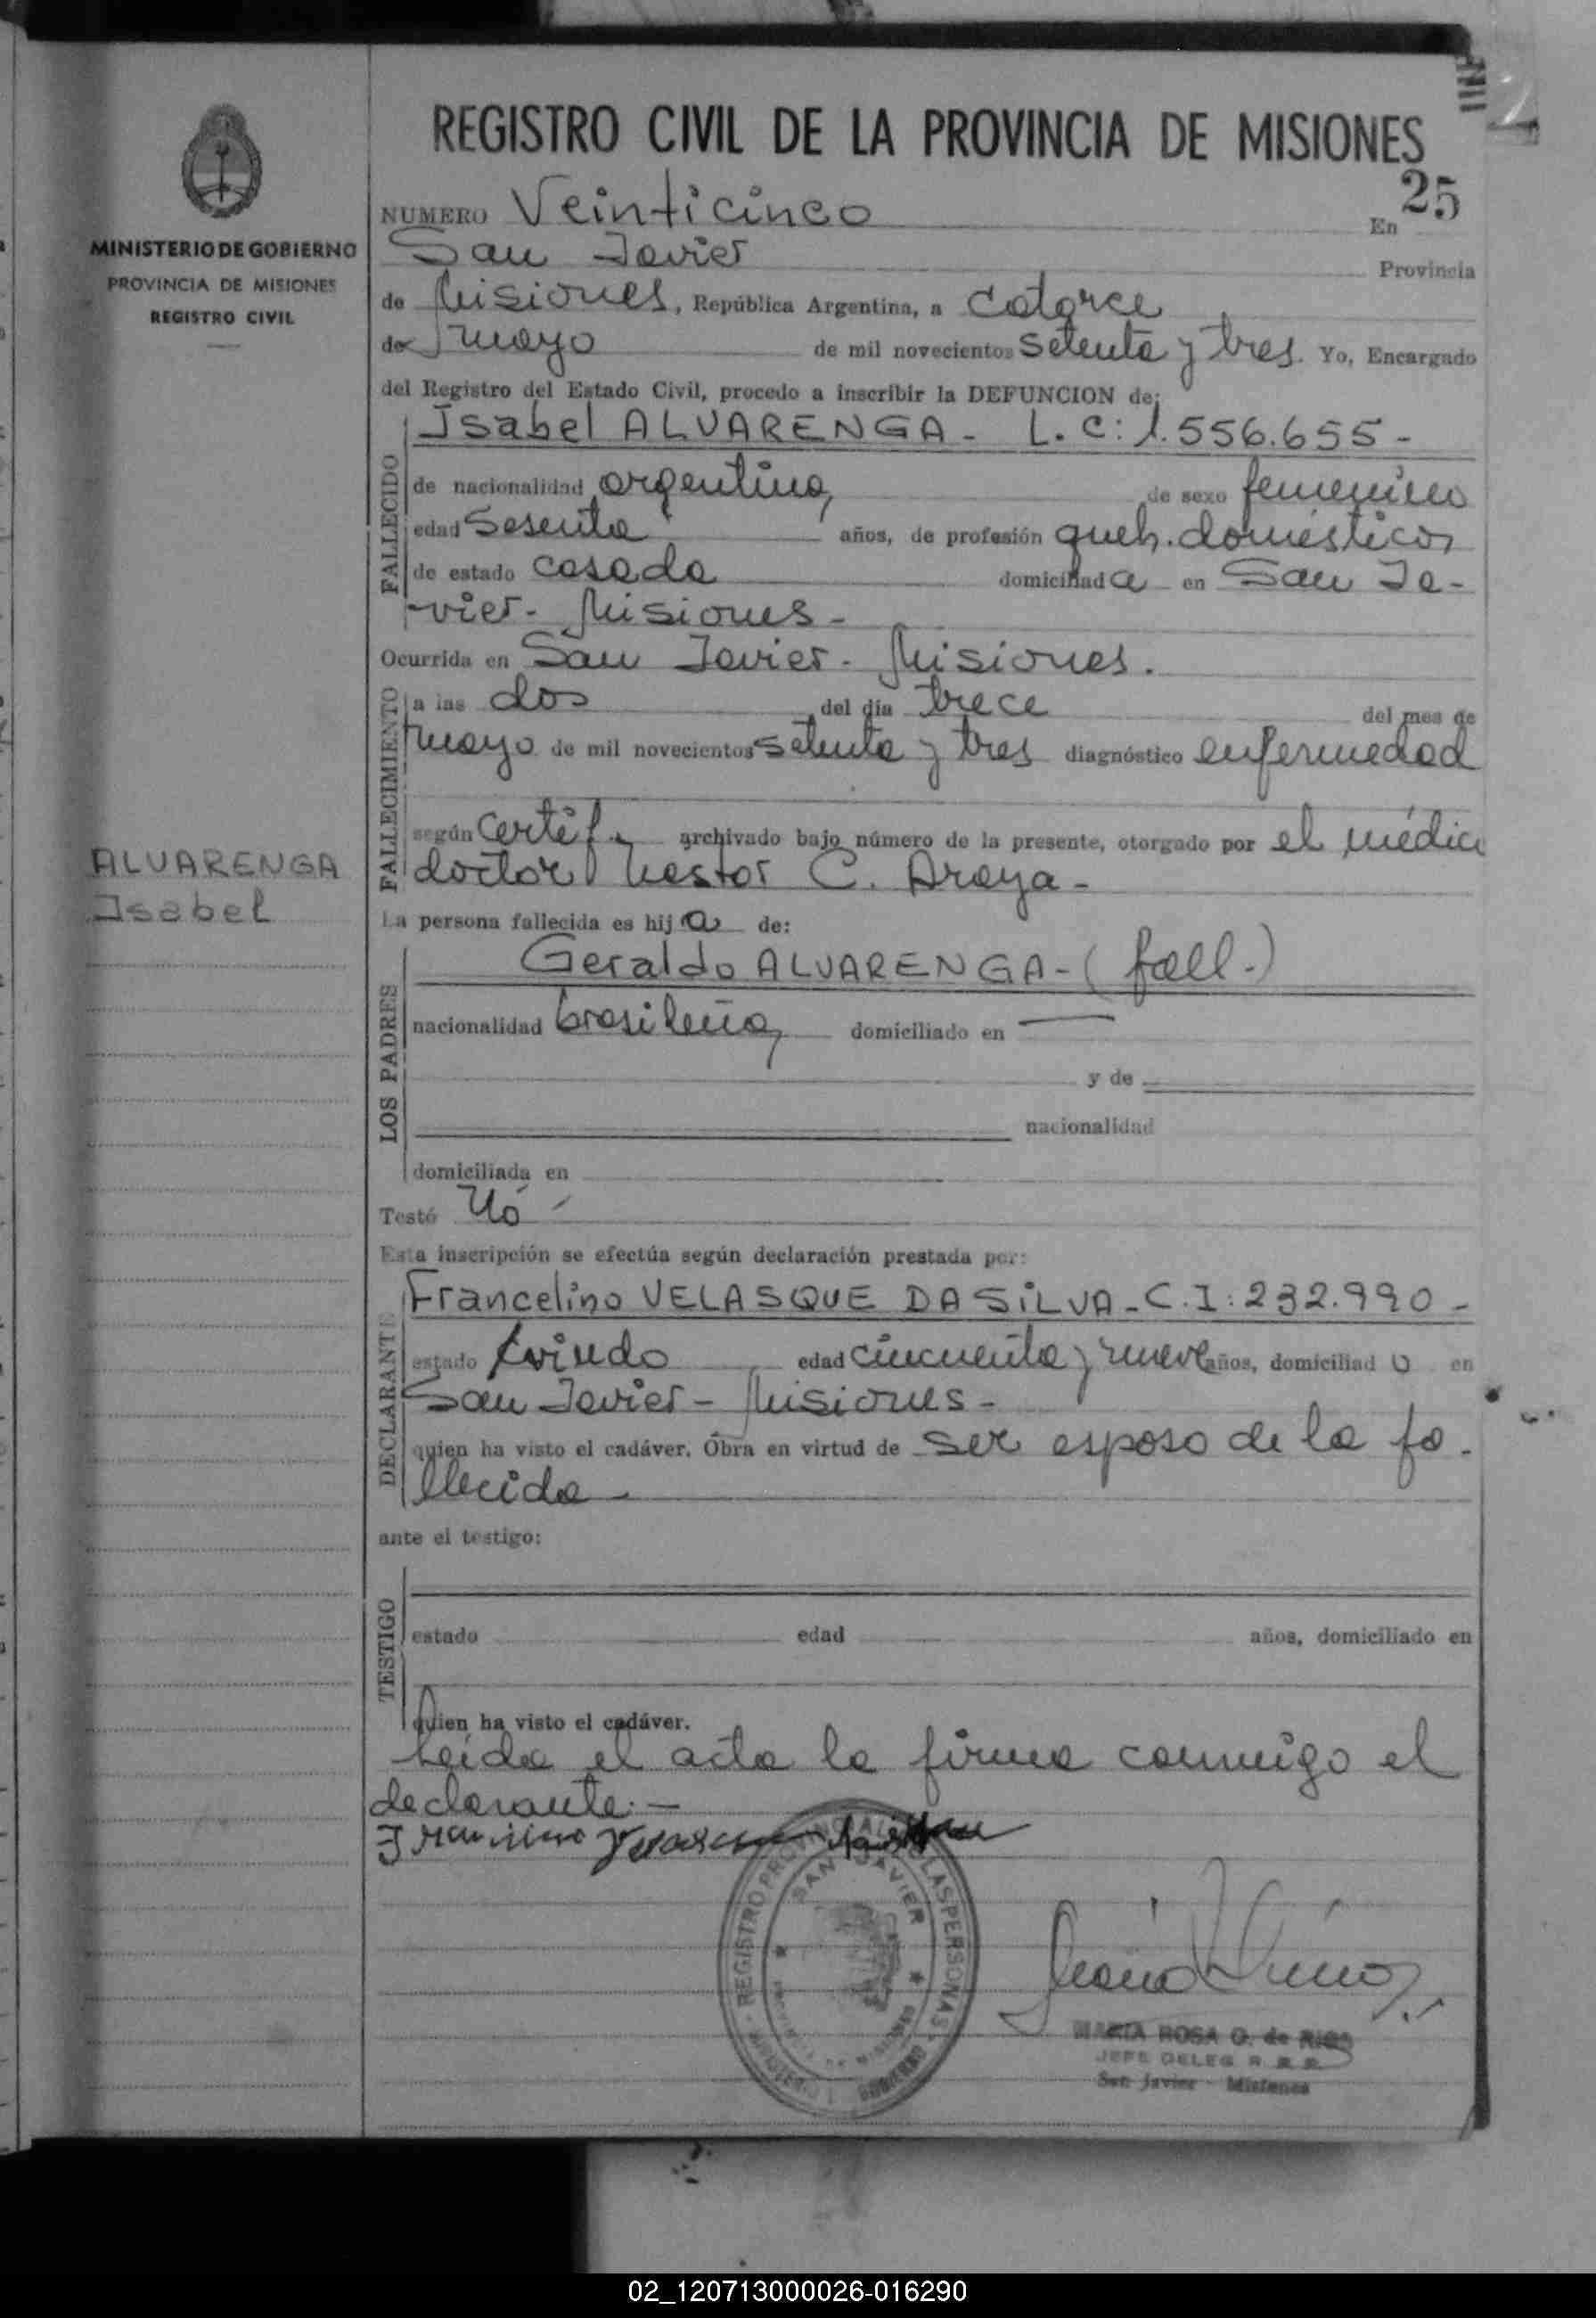 REGISTRO CIVIL DE LA PROVINCIA DE MISIONES
MINISTERIO DE GOBIERNO
PROVINCIA DE MISIONES
REGISTRO CIVIL
25
NUMERO Veinticinco En
San Javier Provincia
de Misiones, República Argentina, a catorce
de mayo de mil novecientos setenta y tres. Yo, Encargado
del Registro del Estado Civil, procedo a inscribir la DEFUNCION de:
FALLECIDO
Isabel ALVARENGA - L.C: 1.556.655 -
de nacionalidad argentina, de sexo femenino
edad sesenta años, de profesión queh. domésticos
de estado casada domiciliada en San Ja-
vier - Misiones -
Ocurrida en San Javier - Misiones.
FALLECIMIENTO
a las dos del día trece del mes de
mayo de mil novecientos setenta y tres diagnóstico enfermedad
según Certif. archivado bajo número de la presente, otorgado por el médico
doctor Nestor C. Araya -
ALVARENGA
Isabel
La persona fallecida es hija de:
LOS PADRES
Geraldo ALVARENGA - (fall.)
nacionalidad brasileña, domiciliado en —
y de
nacionalidad
domiciliada en
Testó No -
Esta inscripción se efectúa según declaración prestada por:
DECLARANTE
Francelino VELASQUE DA SILVA - C.I: 232.990 -
estado viudo edad cincuenta y nueve años, domiciliado en
San Javier - Misiones -
quien ha visto el cadáver. Obra en virtud de ser esposo de la fa-
llecida -
ante el testigo:
TESTIGO
estado edad años, domiciliado en
quien ha visto el cadáver.
Leída el acta la firma conmigo el
declarante. -
REGISTRO PROVINCIAL DE LAS PERSONAS
SAN JAVIER
MARIA ROSA O. de RIOS
JEFE DELEG R. P. P.
San Javier - Misiones
02_120713000026-016290